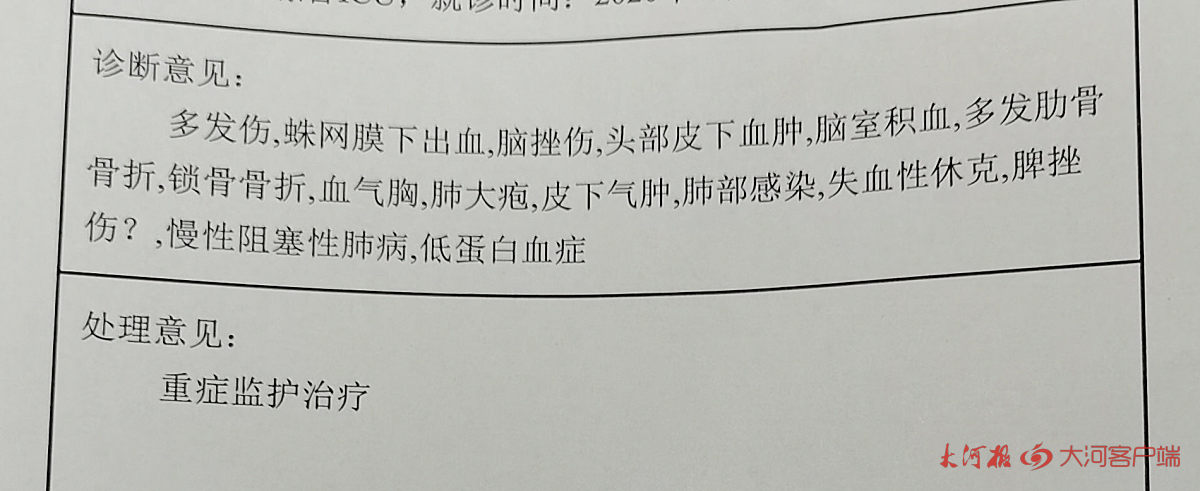 ICU，就诊时间：2020
诊断意见：
多发伤,蛛网膜下出血,脑挫伤,头部皮下血肿,脑室积血,多发肋骨
骨折,锁骨骨折,血气胸,肺大疱,皮下气肿,肺部感染,失血性休克,脾挫
伤？,慢性阻塞性肺病,低蛋白血症
处理意见：
重症监护治疗
大河报 大河客户端